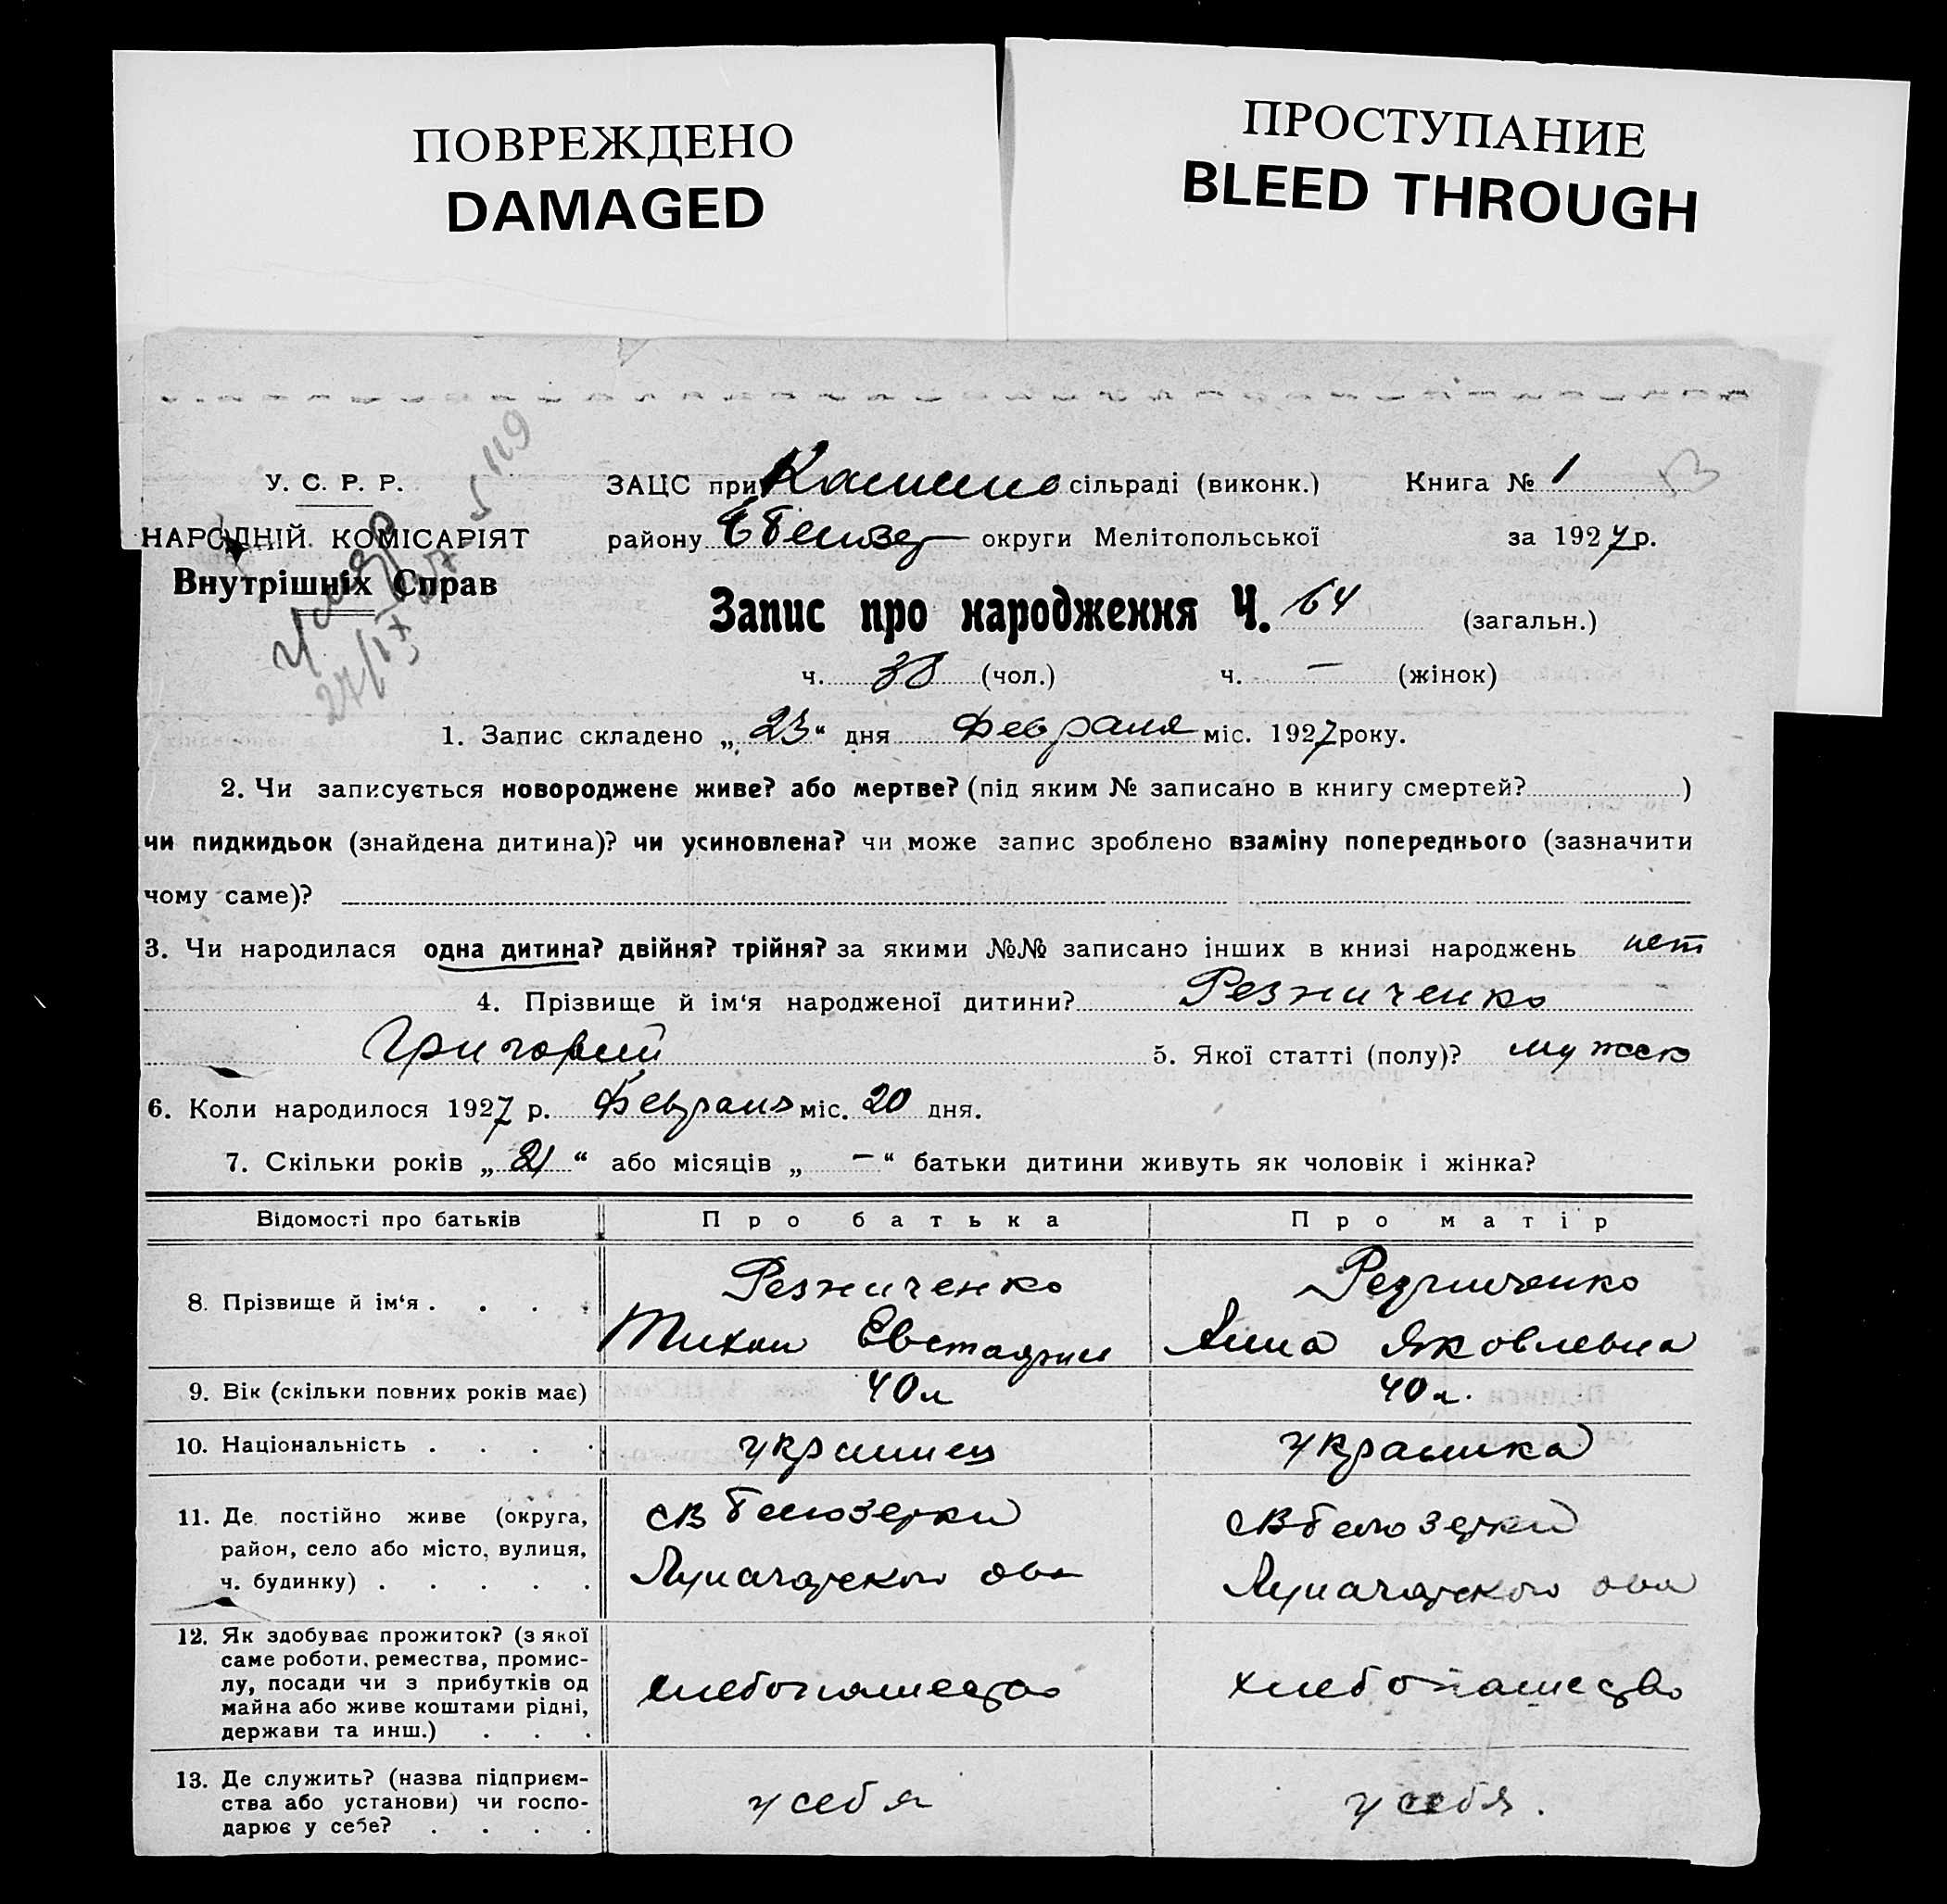 ПОВРЕЖДЕНО
DAMAGED
ПРОСТУПАНИЕ
BLEED THROUGH
119
У. С. Р. Р.
НАРОДНІЙ КОМІСАРІЯТ
Внутрішніх Справ
умер
ЗАЦС при сільраді (виконк.) Книга № 1
району округи Мелітопольської за 1927 р.
Запис про народження Ч. 64 (загальн.)
ч. 38 (чол.) ч. — (жінок)
1. Запис складено „23“ дня Февраля міс. 1927 року.
2. Чи записується новороджене живе? або мертве? (під яким № записано в книгу смертей? )
чи пидкидьок (знайдена дитина)? чи усиновлена? чи може запис зроблено взаміну попереднього (зазначити
чому саме)?
3. Чи народилася одна дитина? двійня? трійня? за якими №№ записано інших в книзі народжень нет
4. Прізвище й ім‘я народженої дитини? Резниченко
Григорий 5. Якої статті (полу)? мужск
6. Коли народилося 1927 р. Февраля міс. 20 дня.
7. Скільки років „21“ або місяців „ — “ батьки дитини живуть як чоловік і жінка?
Відомості про батьків Про батька Про матір
8. Прізвище й ім‘я . . . . Резниченко Резниченко
Тихон Анна Яковлевна
9. Вік (скільки повних років має) 40 л 40 л.
10. Національність . . . . украинец украинка
11. Де постійно живе (округа, св Белозерки св Белозерки
район, село або місто, вулиця,
ч. будинку) . . . . . Луначарского ова Луначарского ова
12. Як здобуває прожиток? (з якої
саме роботи, ремества, промис-
лу, посади чи з прибутків од хлебопашество хлебопашество
майна або живе коштами рідні,
держави та инш.) . . .
13. Де служить? (назва підприєм-
ства або установи) чи госпо- у себя у себя.
дарює у себе? . . . .